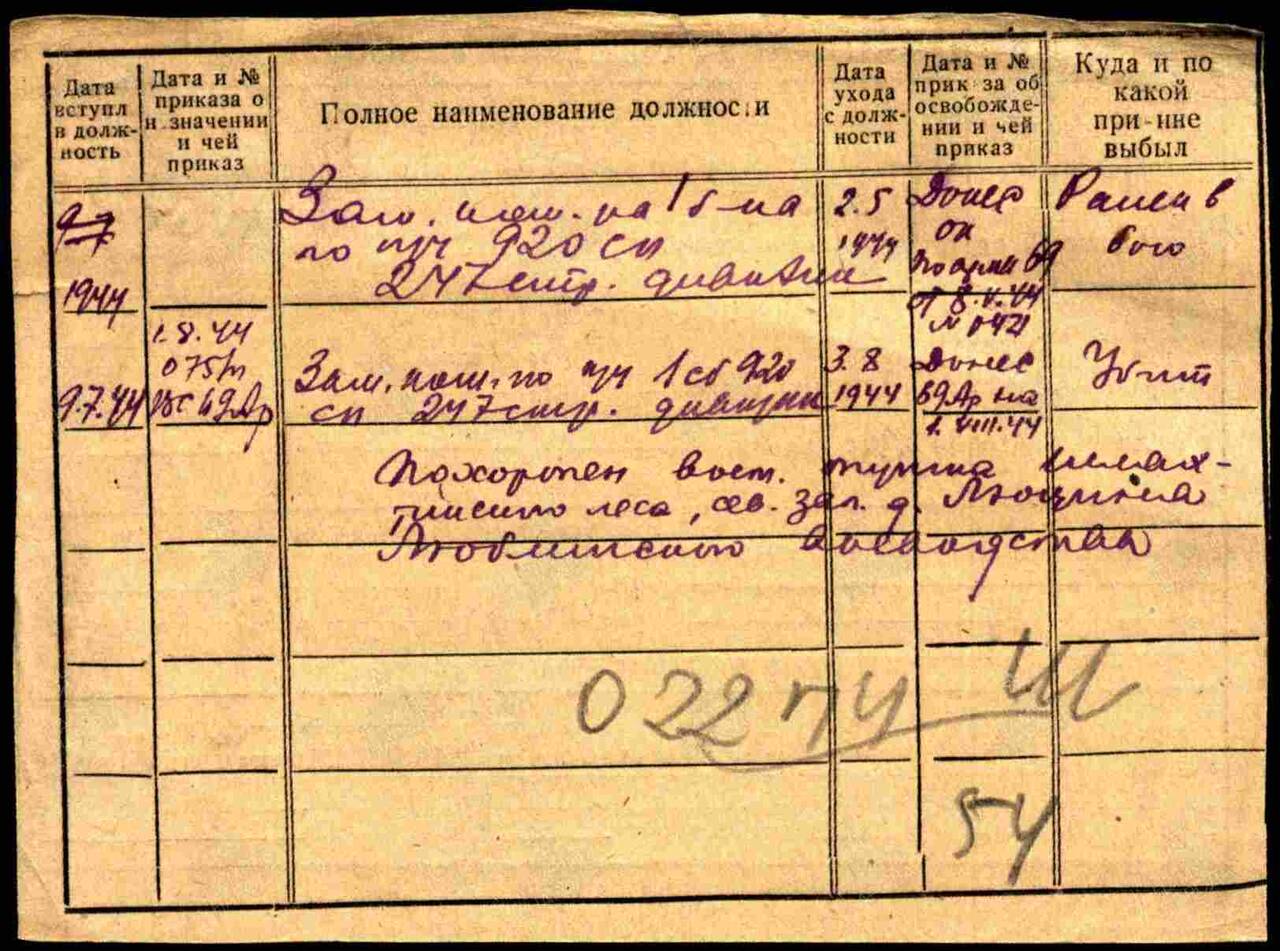 Дата
вступл
в долж-
ность
Дата и №
приказа о
н значении
и чей
приказ
Полное наименование должности
Дата
ухода
с долж-
ности
Дата и №
прик за об
освобожде-
нии и чей
приказ
Куда и по
какой
при-ине
выбыл
1944
Зам. ком. 1 б-на
по п/ч 920 сп
247 стр. дивизии
2.5
1944
Донес
от 8.V.44
№ 0421
Ранен в
бою
9.7.44
1.8.44
69 Ар
Зам. ком. по п/ч 1 сб 920
сп 247 стр. дивизии
3.8
1944
Донес
69 Ар на
1.VIII.44
Убит
Похоронен вост.
леса, сев. зап. д.
Люблинского воеводства
022 пу
54